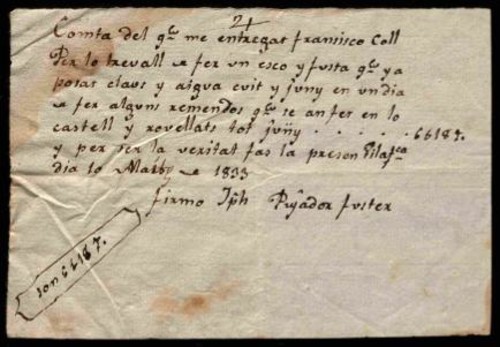 21
Comta del qᵉ me entregat fransisco Coll
Per lo trevall de fer un esco y fusta qᵉ ya
posat claus y aigua cuit y juny en un dia
de fer alguns remendos qᵉ se an fet en lo
castell y rovellats tot juny . . . . . 6618₰.
y per ser la veritat fas la present Vilafᶜᵃ
dia 10 de 1833
firmo Jph Pujador fuster
son 6618₰.